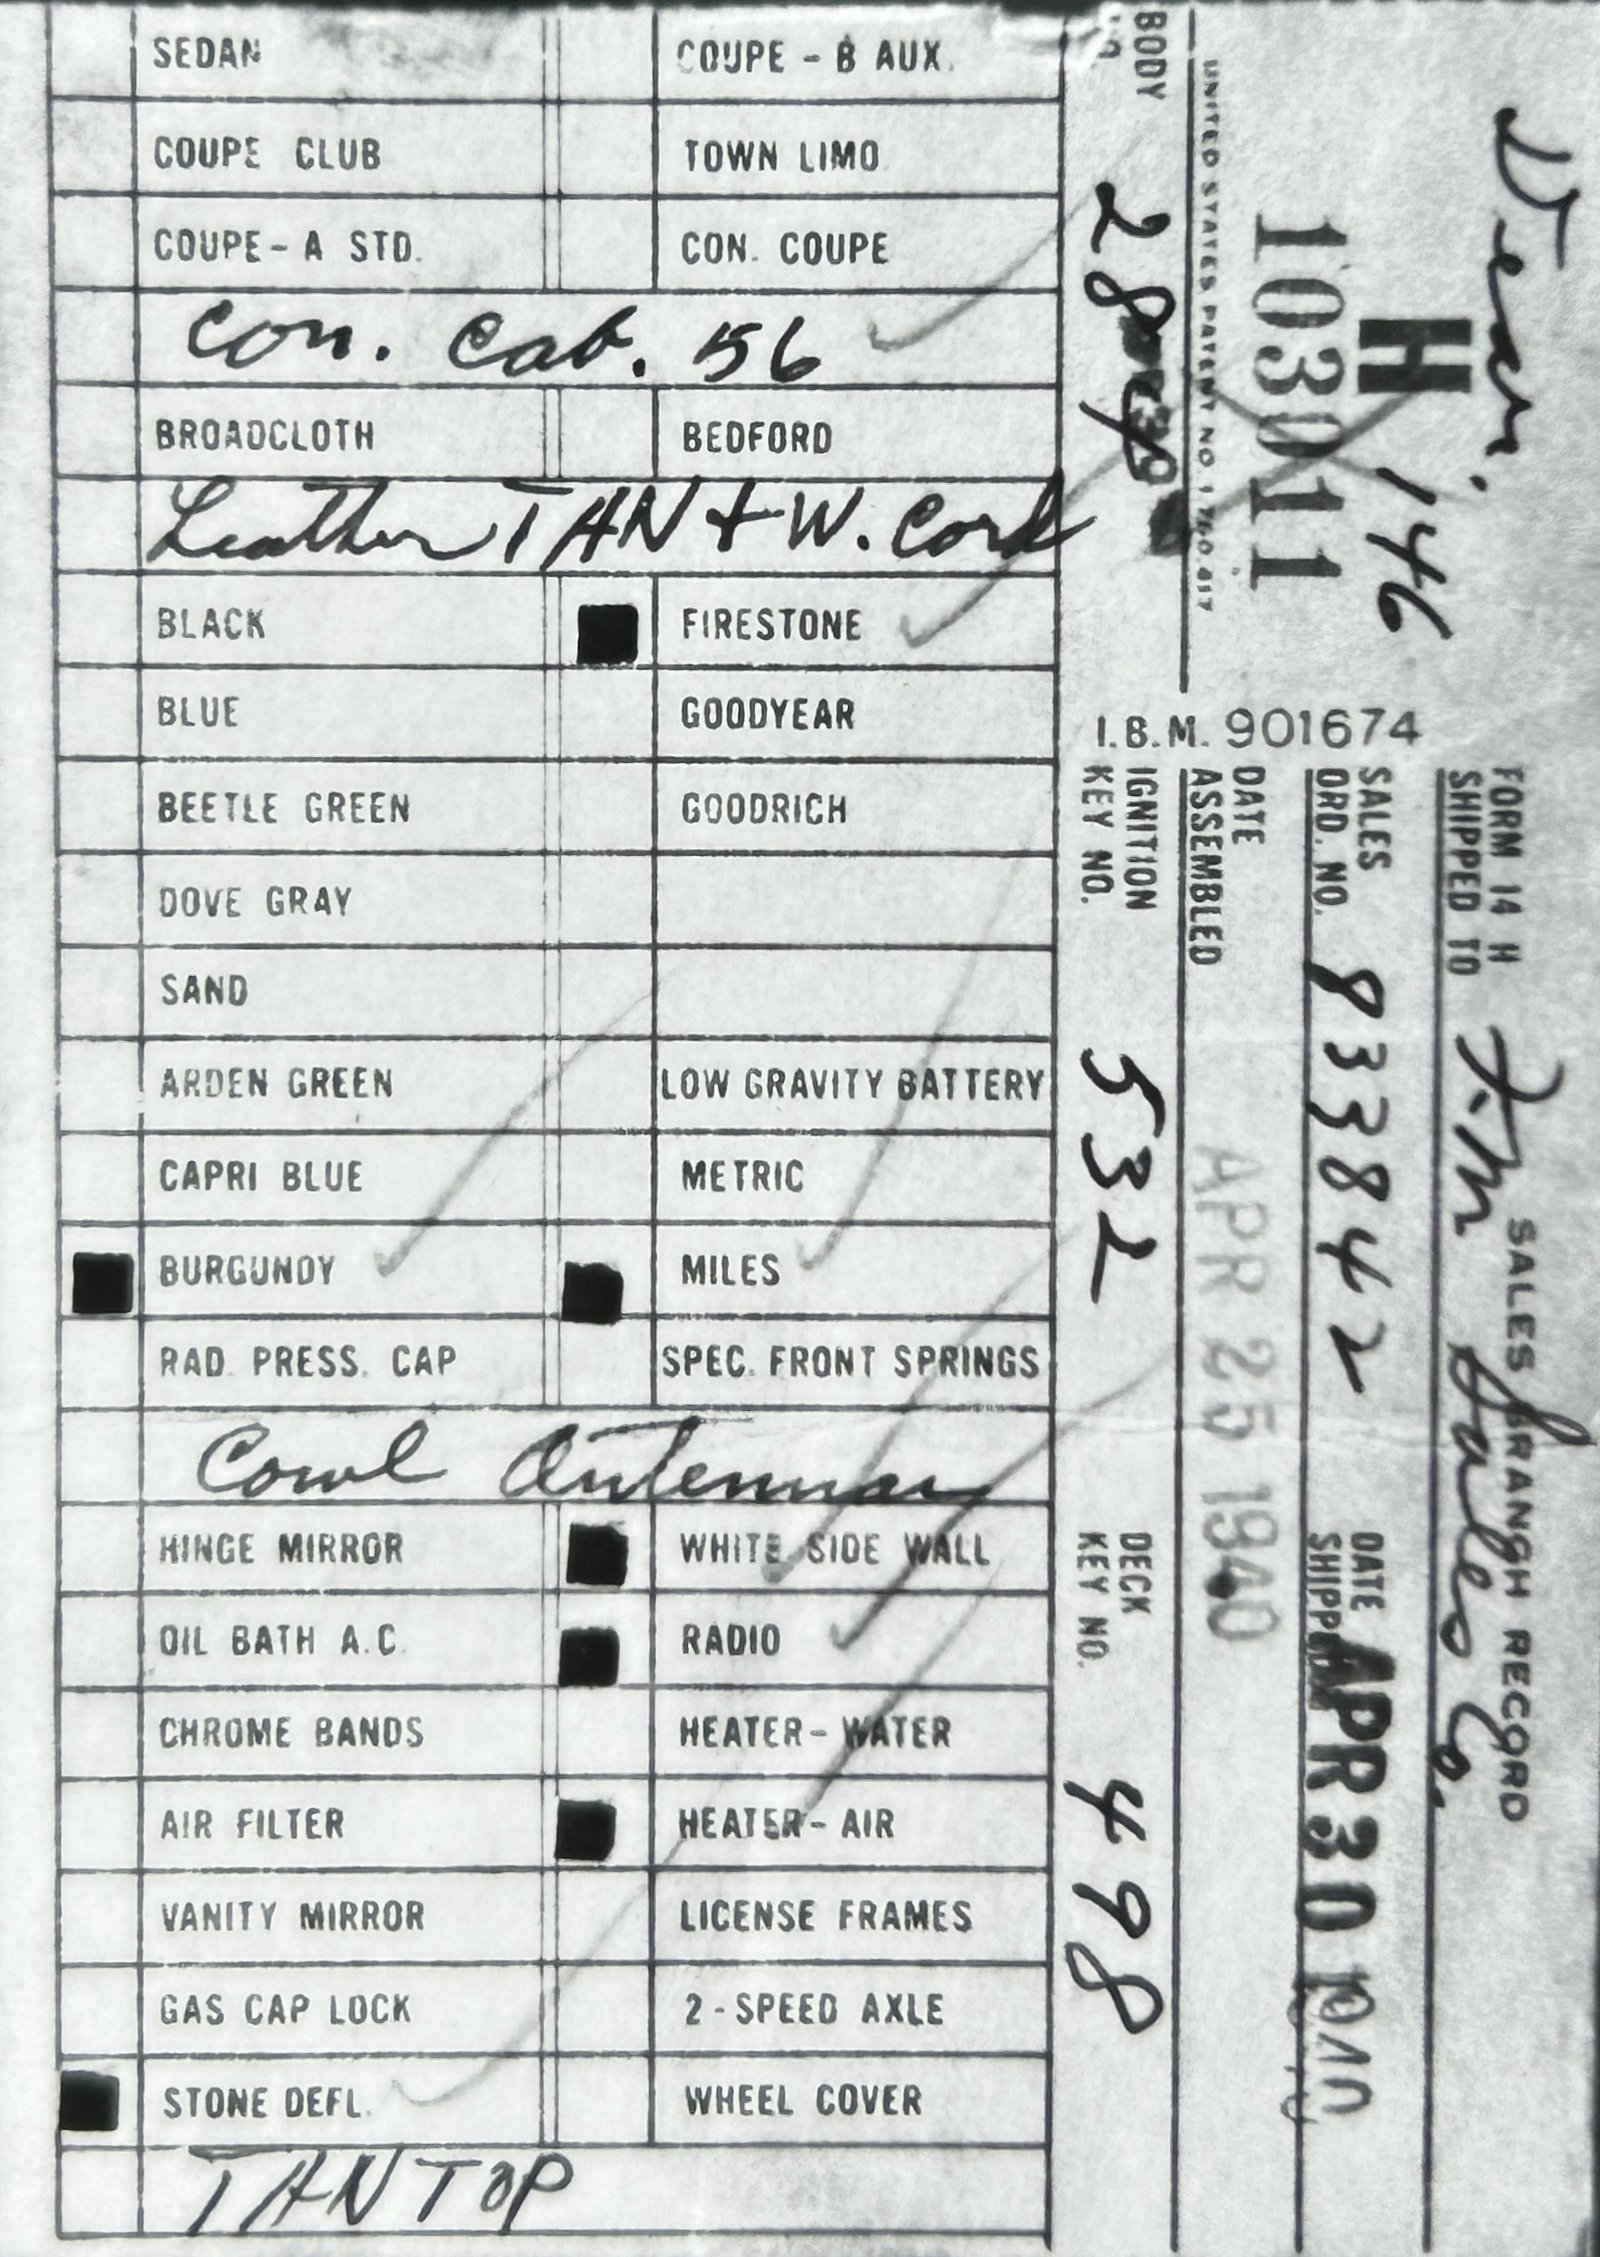 SEDAN COUPE - B AUX.
COUPE CLUB TOWN LIMO
COUPE - A STD. CON. COUPE
Con. Cab. 56
BROADCLOTH BEDFORD
Leather TAN + W. Cord
BLACK FIRESTONE
BLUE GOODYEAR
BEETLE GREEN GOODRICH
DOVE GRAY
SAND
ARDEN GREEN LOW GRAVITY BATTERY
CAPRI BLUE METRIC
BURGUNDY MILES
RAD. PRESS. CAP SPEC. FRONT SPRINGS
Cowl Antenna
HINGE MIRROR WHITE SIDE WALL
OIL BATH A.C. RADIO
CHROME BANDS HEATER - WATER
AIR FILTER HEATER - AIR
VANITY MIRROR LICENSE FRAMES
GAS CAP LOCK 2 - SPEED AXLE
STONE DEFL. WHEEL COVER
TAN TOP
Dear.
H 146
103011
UNITED STATES PATENT NO 1
BODY NO 28
I.B.M. 901674
FORM 14 H SALES BRANCH RECORD
SHIPPED TO F.M Sales Co.
SALES ORD. NO. 833842
DATE SHIPPED APR 30 1940
DATE ASSEMBLED APR 25 1940
IGNITION KEY NO. 532
DECK KEY NO. 498